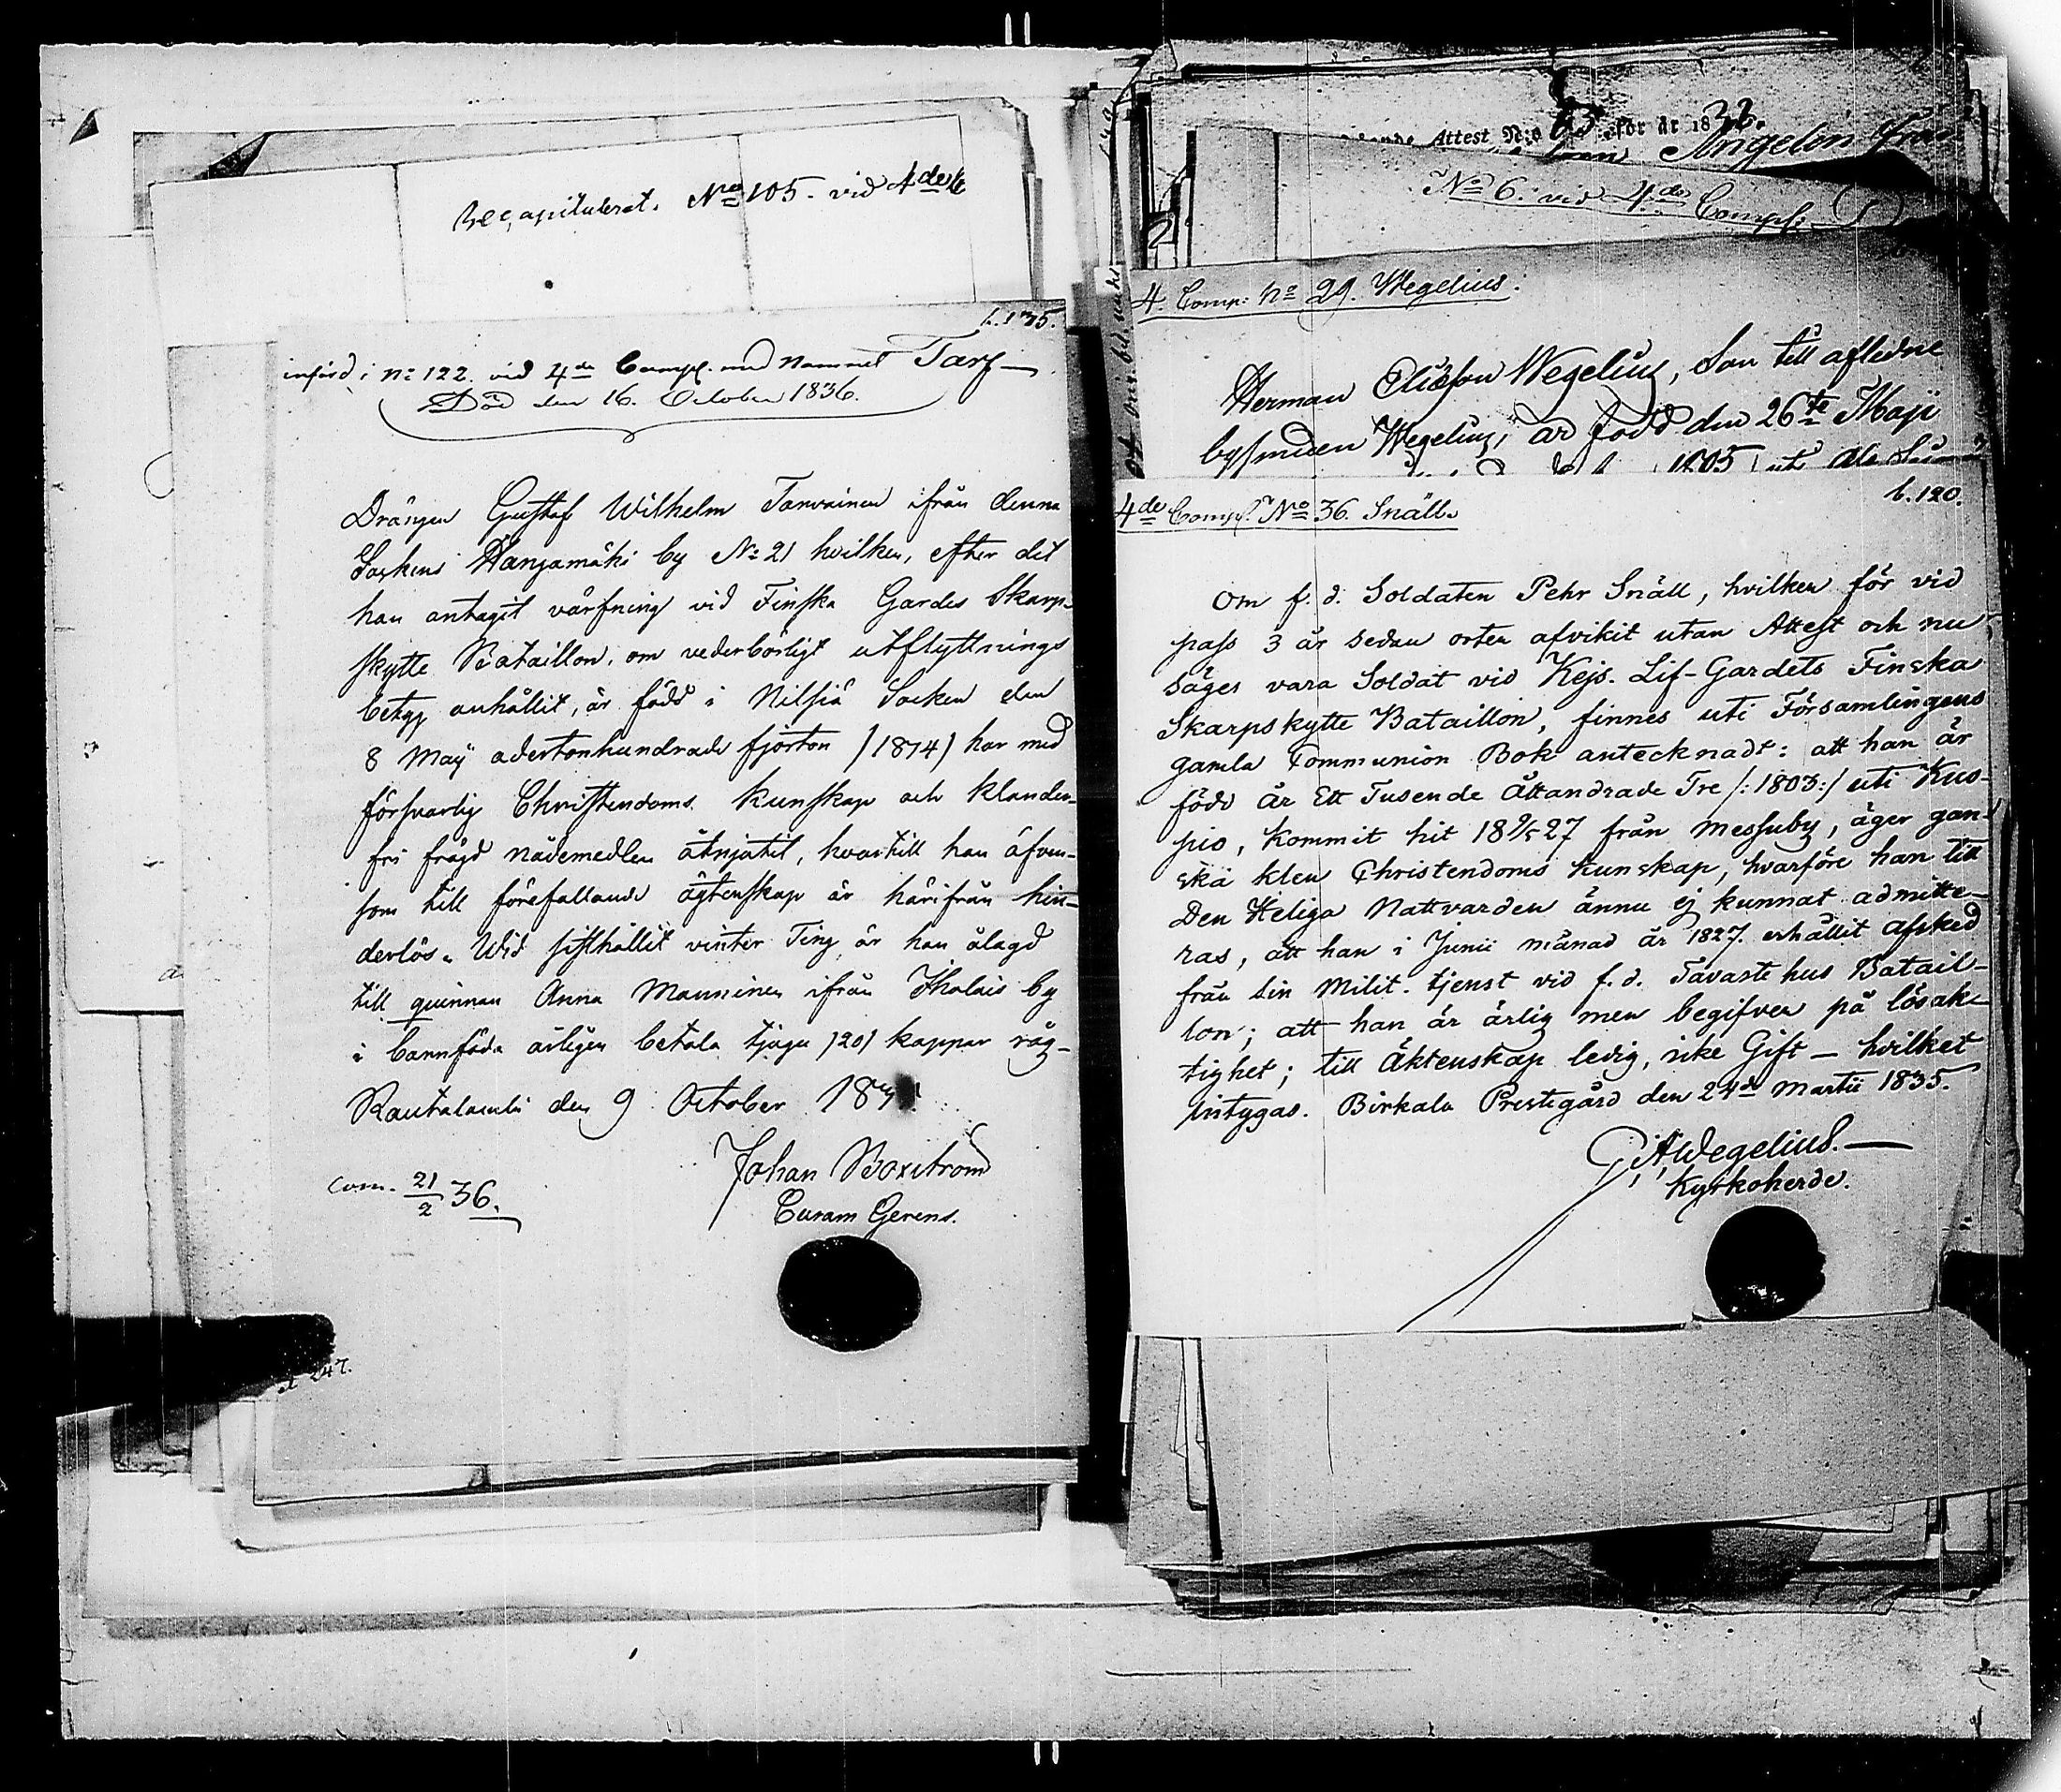 Recapitulerat. No 105. vid 4de
b. 135.
införd i No 122. vid 4de Comp. med Namnet Tarf
Död den 16. October 1836.
Drängen Gustaf Wilhelm Tarvainen ifrån denna
Sockens Hangamäki by No 21 hvilken, efter det
han antagit värfning vid Finska Gardes Skarp-
skytte Bataillon, om vederbörligt utflyttnings
betyg anhållit, är född i Nilsiä Socken den
8 Maij adertonhundrade fjorton /1814/ har med
försvarlig Christendoms kunskap och klander-
fri frägd nådemedlen åtnjutit, hvartill han äfven-
som till förefallande ägtenskap är härifrån hin-
derlös. Wid sisthållit vinter Ting är han ålagd
till quinnan Anna Manninen ifrån by
i barnföda årligen betala tjugu /20/ kappar råg-
Rautalambi den 9 October 18
Johan Boxström
Curam Gerens.
com. 21/2 36.
247.
Attest No 65 för år 183
Angelin från
No 6. vid 4de Comp:
4. Comp: No 29. Wegelius:
Herman Eliæson Wegelius, Son till aflidne
Wegelius, är född den 26te Maji
1805 uti
b. 120.
4de Comp. No 36. Snäll.
Om f. d. Soldaten Pehr Snäll, hvilken för vid
pass 3 år sedan orten afvikit utan Attest och nu
säges vara Soldat vid Kejs. Lif-Gardets Finska
Skarpskytte Bataillon, finnes uti Församlingens
gamla Communion Bok antecknadt: att han är
född år Ett Tusende Åttandrade Tre /:1803:/ uti Kuo-
pio, kommit hit 18 9/5 27 från Messuby, äger gan-
ska klen Christendoms kunskap, hvarföre han till
Den Heliga Nattvarden ännu ej kunnat admitte-
ras, att han i Junii månad år 1827. erhållit afsked
från sin Milit. tjenst vid f. d. Tavastehus Batail-
lon; att han är ärlig men begifven på lösak-
tighet; till Äktenskap ledig, icke Gift – hvilket
intygas. Birkala Prestegård den 24de Martii 1835.
G. A. Wegelius.
Kyrkoherde.